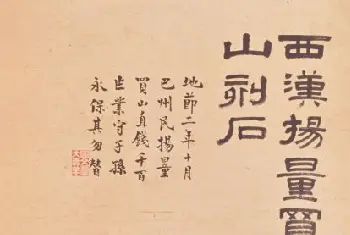 西漢揚量買
山刻石
地節二年十月
巴州民揚量
買山直錢千百
乍業守子孫
永保其勿替